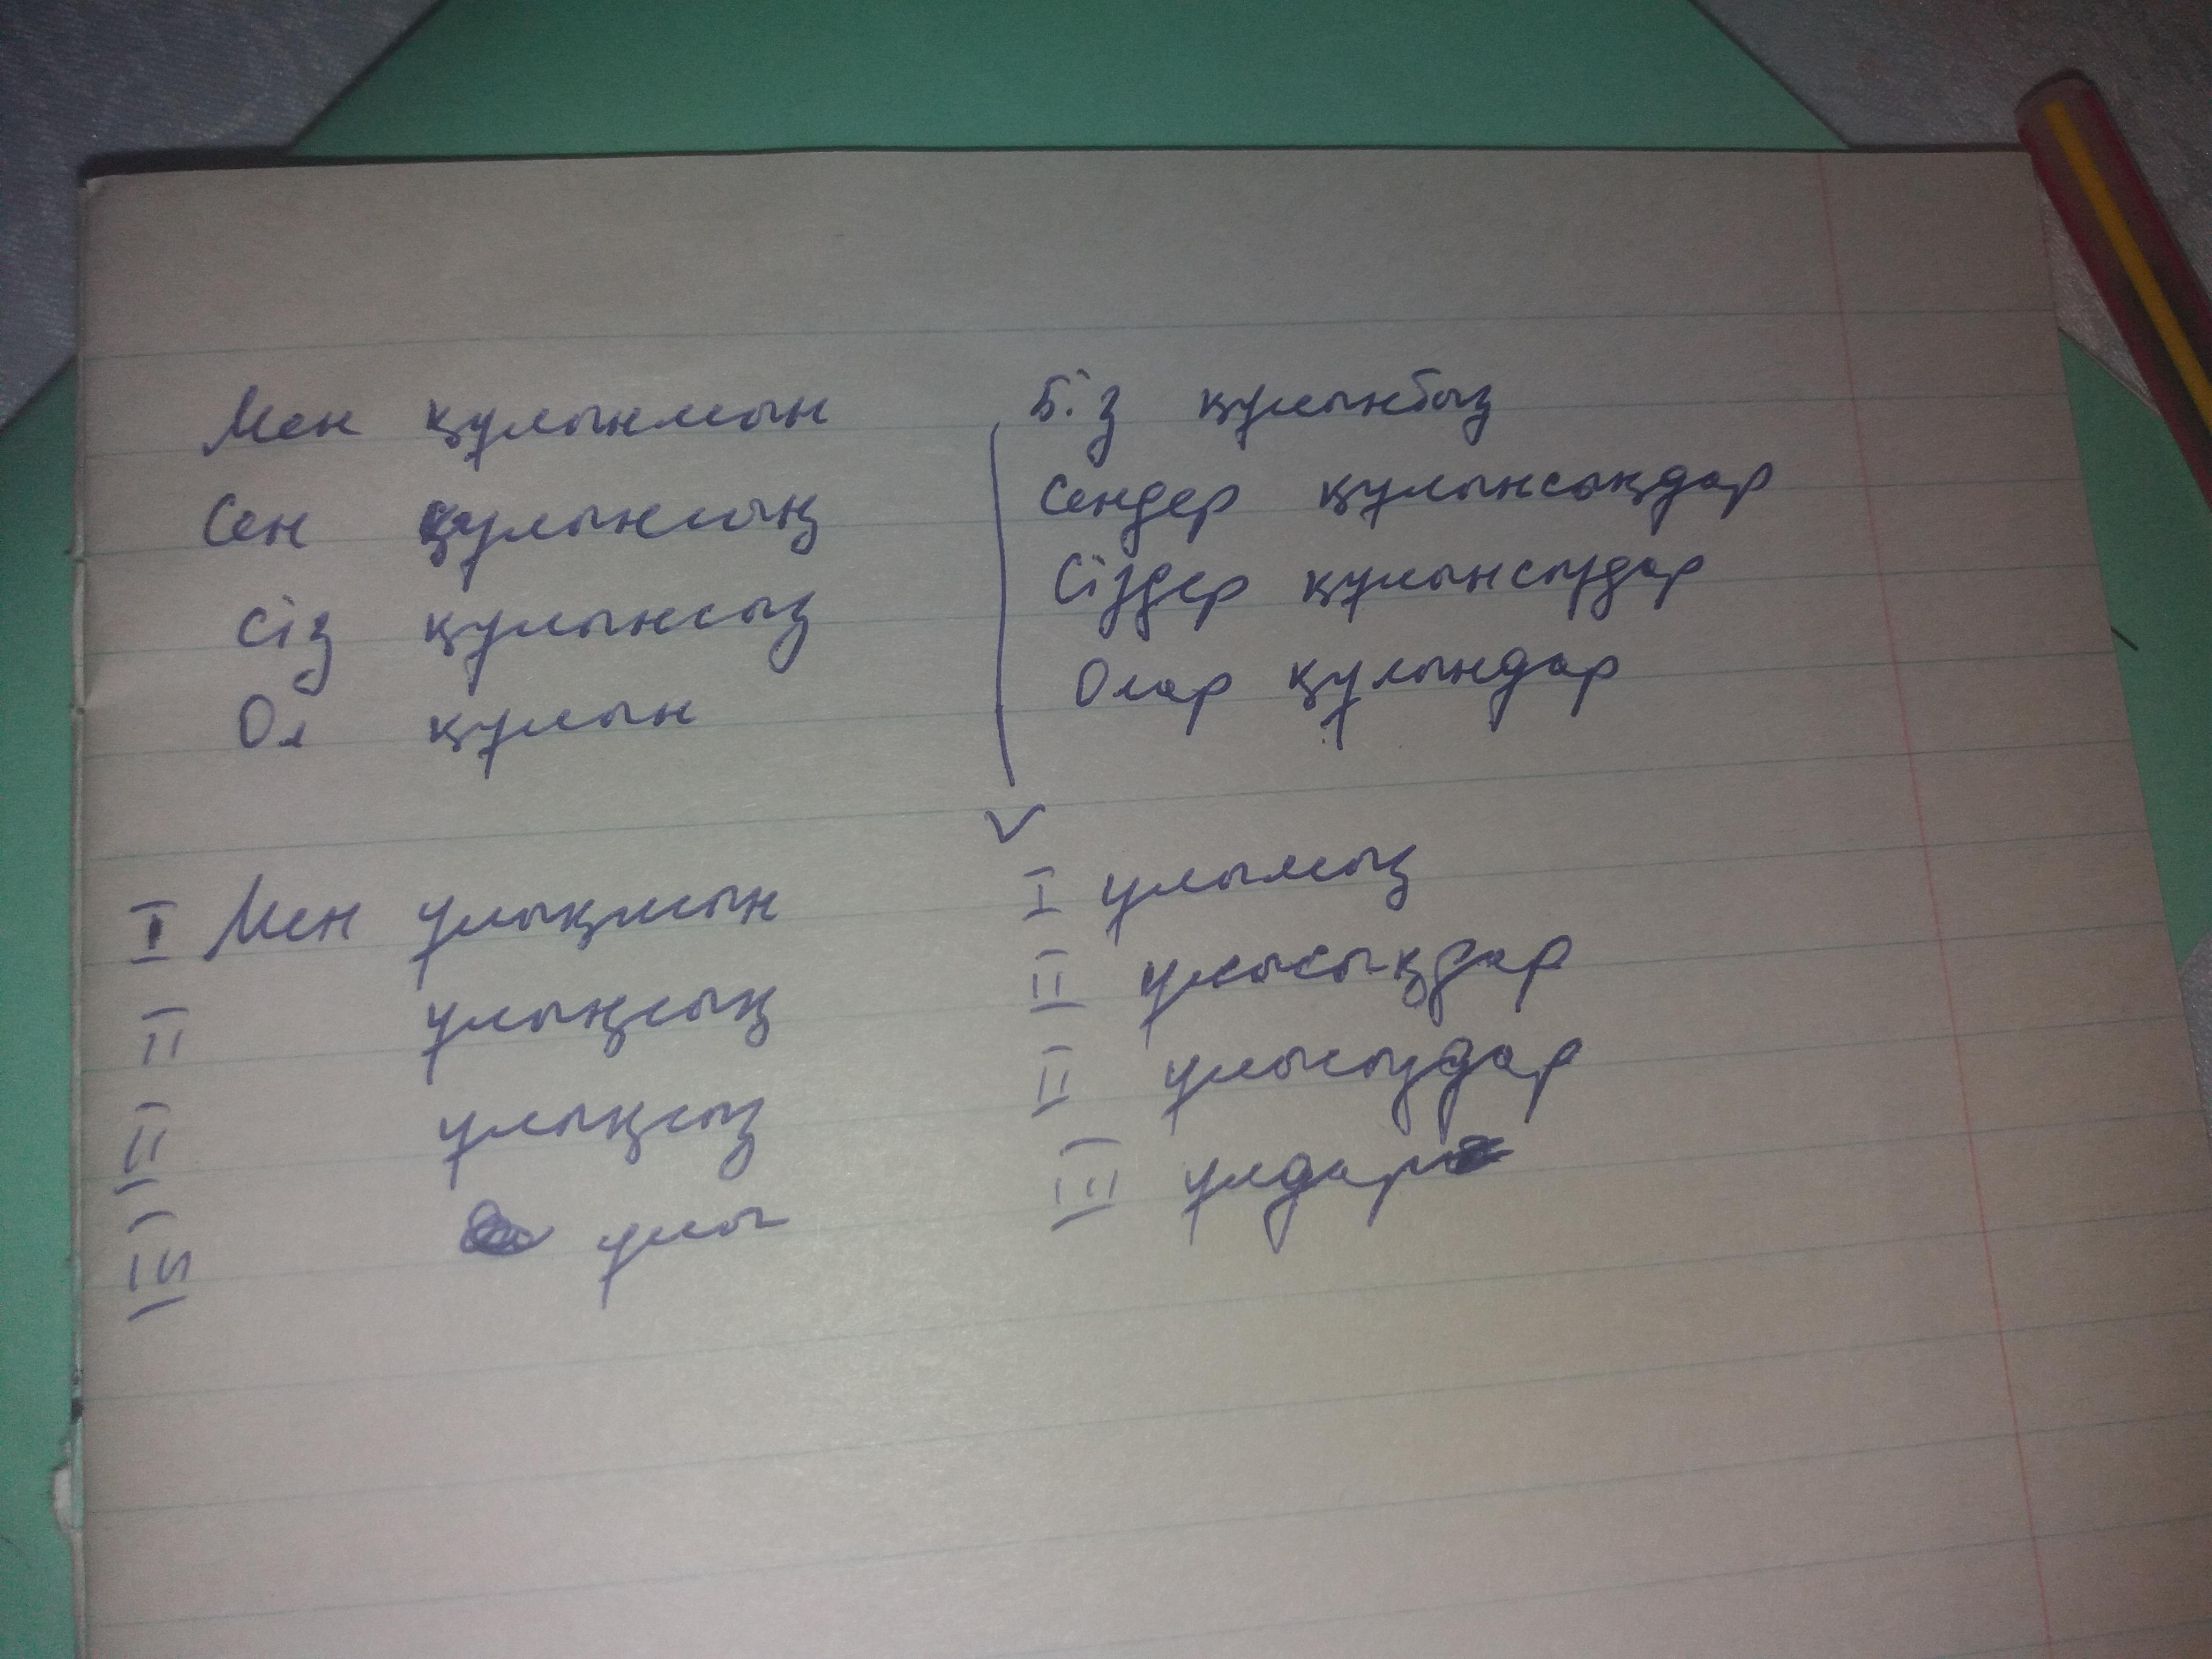 Мен құлынмын
Сен құлынсың
Сіз құлынсыз
Ол құлын
Біз құлынбыз
Сендер құлынсыңдар
Сіздер құлынсыздар
Олар құлындар
I Мен ұлыңмын
II ұлыңсың
II ұлыңсыз
III ұлы
I ұлымыз
II ұлысыңдар
II ұлысыздар
III ұлдар